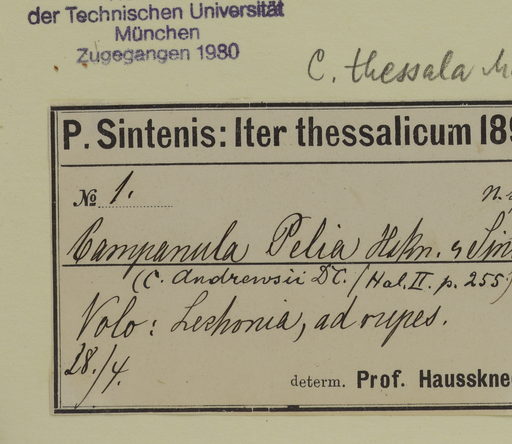 der Technischen Universität
München
Zugegangen 1980
C. thessala
P. Sintenis: Iter thessalicum 189
№ 1.
Campanula Pelia Hskn. & Sin
(C. Andrewsii DC. / Hal. II. p. 255)
Volo: Lechonia, ad rupes.
28./4.
determ. Prof. Hausskne